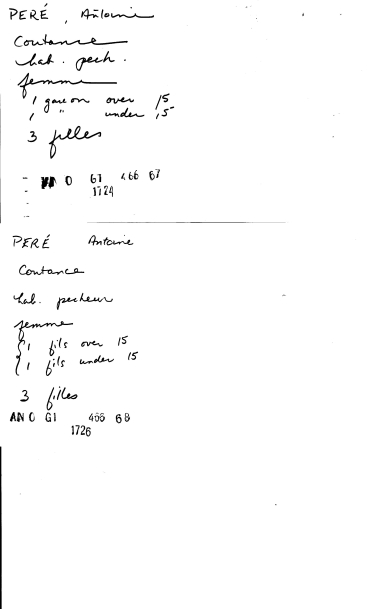 PERÉ, Antoine
Coutance
hab. pech.
femme
1 garcon over 15
1 " under 15
3 filles
0 G1 466 67
1724
PERÉ Antoine
Coutance
hab. pecheur
femme
1 fils over 15
1 fils under 15
3 filles
AN C G1 466 68
1726